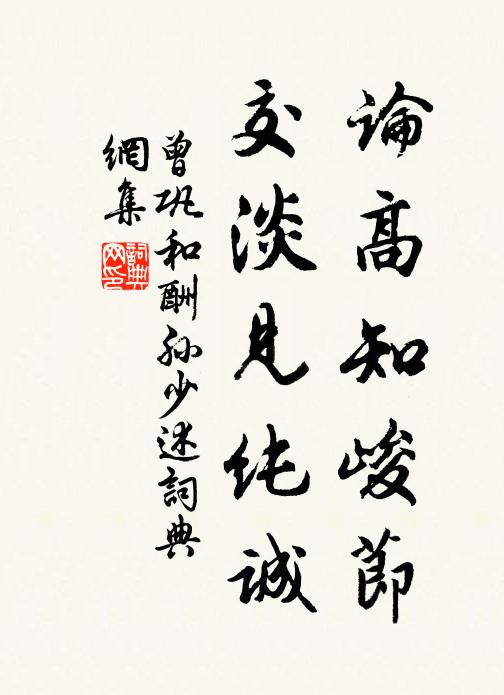 論高知峻節
交淡見純誠
曾巩和酬孙少述詞典
網集
詞典網印